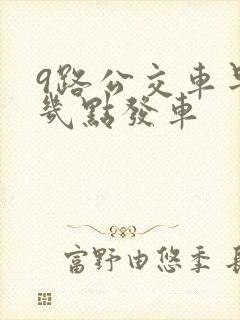 9路公交車早
幾點發車
富野由悠季